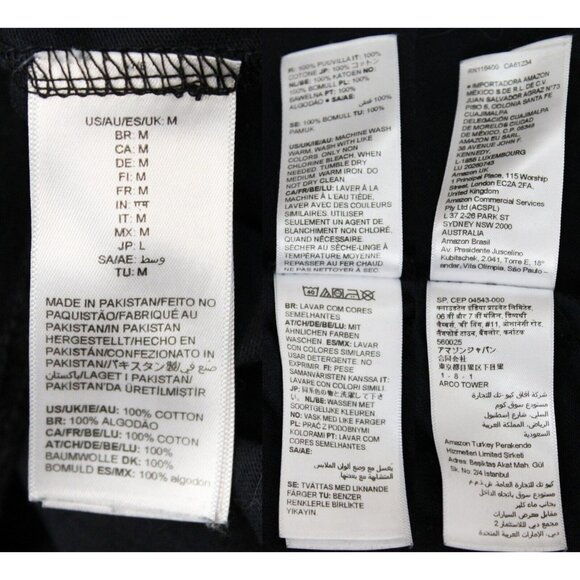 US/AU/ES/UK: M
BR: M
CA: M
DE: M
FI: M
FR: M
IN: एम
IT: M
MX: M
JP: L
SA/AE: وسط
TU: M
MADE IN PAKISTAN/FEITO NO
PAQUISTÃO/FABRIQUÉ AU
PAKISTAN/IN PAKISTAN
HERGESTELLT/HECHO EN
PAKISTÁN/CONFEZIONATO IN
PAKISTAN/パキスタン製/صنع في
باكستان/LAGET I PAKISTAN/
PAKİSTAN'DA ÜRETİLMİŞTİR
US/UK/IE/AU: 100% COTTON
BR: 100% ALGODÃO
CA/FR/BE/LU: 100% COTON
AT/CH/DE/BE/LU: 100%
BAUMWOLLE DK: 100%
BOMULD ES/MX: 100% algodon
FI: 100% PUUVILLA IT: 100%
COTONE JP: 100% コットン
NL/BE: 100% KATOEN NO:
100% BOMULL PL: 100%
BAWELNA PT: 100%
ALGODÃO SA/AE:
100% قطن
SE: 100% BOMULL TU: 100%
PAMUK
US/UK/IE/AU: MACHINE WASH
WARM, WASH WITH LIKE
COLORS. ONLY NON
CHLORINE BLEACH, WHEN
NEEDED. TUMBLE DRY
MEDIUM. WARM IRON. DO
NOT DRY CLEAN.
CA/FR/BE/LU: LAVER À LA
MACHINE À L'EAU TIÈDE,
LAVER AVEC DES COULEURS
SIMILAIRES. UTILISER
SEULEMENT UN AGENT DE
BLANCHIMENT NON CHLORÉ,
QUAND NÉCESSAIRE.
SÉCHER AU SÈCHE-LINGE À
TEMPÉRATURE MOYENNE.
REPASSER AU FER CHAUD.
NE PAS NETTOYER À SEC
BR: LAVAR COM CORES
SEMELHANTES
AT/CH/DE/BE/LU: MIT
ÄHNLICHEN FARBEN
WASCHEN. ES/MX: LAVAR
CON COLORES SIMILARES
USAR DETERGENTE. NO
EXPRIMIR FI: PESE
SAMANVÄRISTEN KANSSA IT:
LAVARE CON COLORI SIMILI.
NL/BE: WASSEN MET
SOORTGELIJKE KLEUREN
NO: VASK MED LIKE FARGER
PL: PRAĆ Z PODOBNYMI
KOLORAMI PT: LAVAR COM
CORES SEMELHANTES
SA/AE:
SE: TVÄTTAS MED LIKNANDE
FÄRGER TU: BENZER
RENKLERLE BİRLİKTE
YIKAYIN.
RN116409 CA61234
IMPORTADORA AMAZON
MÉXICO S DE R.L DE C.V.
JUAN SALVADOR AGRAZ N°73
PISO 5, COLONIA SANTA FE
CUAJIMALPA
DELEGACIÓN CUAJIMALPA
DE MORELOS CIUDAD
DE MÉXICO, C.P. 05348
AMAZON EUROPE
38 AVENUE JOHN F.
KENNEDY,
L-1855 LUXEMBOURG
LU 20260743
Amazon UK
1 Principal Place, 115 Worship
Street, London EC2A 2FA.
United Kingdom
Amazon Commercial Services
Pty Ltd (ACSPL)
L 37 2-26 PARK ST
SYDNEY NSW 2000
AUSTRALIA
Amazon Brasil
Av. Presidente Juscelino
Kubitschek, 2.041, Torre E, 18°
andar, Vila Olímpia, São Paulo –
SP, CEP 04543-000
560025
アマゾンジャパン
東京都目黒区下目黒
1 - 8 - 1
ARCO TOWER
السعودية
Amazon Turkey Perakende
Hizmetleri Limited Şirketi
Adres: Beşiktaş Akat Mah. Gül
Sk. No. 2/4 Istanbul
الامارات العربية المتحدة